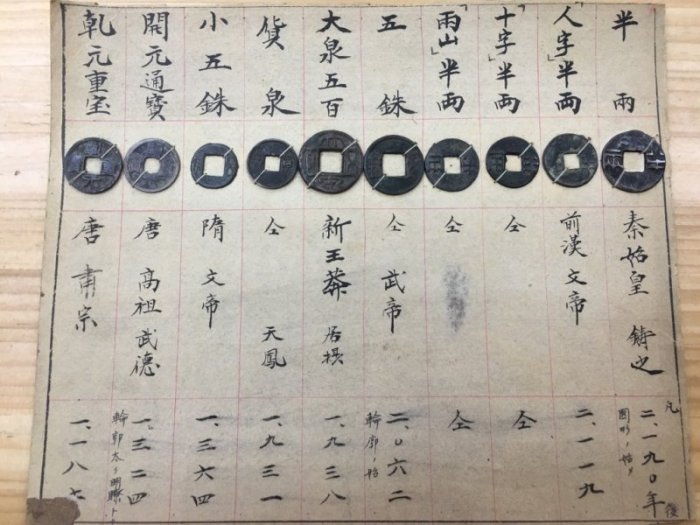 半兩
秦始皇 鋳之
凡 二、一九〇年
圓形ノ始メ
後
「人字」半両
前漢 文帝
二、一一九
「十字」半両
仝
仝
「兩山」半両
仝
仝
五銖
仝 武帝
二、〇六二
輪廓ノ始
大泉五百
新王莽 居摂
一、九三八
貨泉
仝 天鳳
一、九三一
小五銖
隋 文帝
一、三六四
開元通寳
唐 高祖武德
一、三二四
輪郭太ク明瞭ト
乾元重宝
唐 肅宗
一、一八七